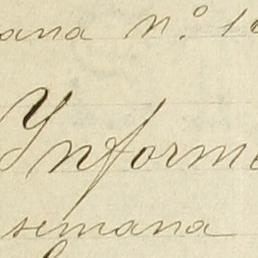 ana n.º 1
Informe
semana